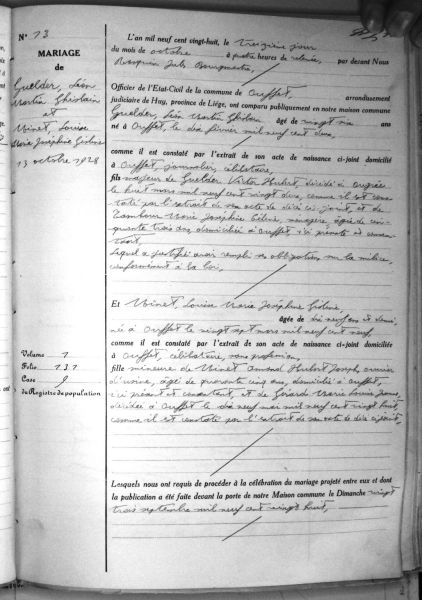 N° 13
MARIAGE
de
Guelder, Léon
Martin Ghislain
et
Winet, Louise
Marie Joséphine Ghislaine
13 octobre 1928
Volume 1
Folio 131
Case 9
du Registre de population
L'an mil neuf cent vingt-huit, le treizième jour
du mois de octobre à quatre heures de relevée, par devant Nous
Rasquin Jules Bourgmestre,
Officier de l'Etat-Civil de la commune de Ouffet, arrondissement
judiciaire de Huy, province de Liége, ont comparu publiquement en notre maison commune
Guelder, Léon Martin Ghislain âgé de vingt six ans
né à Ouffet, le dix février mil neuf cent deux,
comme il est constaté par l'extrait de son acte de naissance ci-joint domicilié
à Ouffet, journalier, célibataire,
fils majeur de Guelder, Victor Hubert, décédé à Ougrée
le huit mars mil neuf cent vingt deux, comme il est cons-
taté par l'extrait de son acte de décès ci-joint, et de
Tambour Marie Joséphine ménagère, âgée de cin-
quante trois ans, domiciliée à Ouffet, ici présente et consen-
tant,
Lequel a justifié avoir rempli ses obligations sur la milice,
conformément à la loi,
Et Winet, Louise Marie Joséphine Ghislaine,
âgée de dix neuf ans et demi,
née à Ouffet le vingt sept mars mil neuf cent neuf
comme il est constaté par l'extrait de son acte de naissance ci-joint domiciliée
à Ouffet, célibataire, sans profession,
fille mineure de Winet Amand Hubert Joseph, ouvrier
d'usine, âgé de quarante cinq ans, domicilié à Ouffet,
ici présent et consentant, et de Gérard Marie Louise
décédée à Ouffet le dix neuf mai mil neuf cent vingt huit,
comme il est constaté par l'extrait de son acte de décès ci-joint,
Lesquels nous ont requis de procéder à la célébration du mariage projeté entre eux et dont
la publication a été faite devant la porte de notre Maison commune le Dimanche vingt
trois septembre mil neuf cent vingt huit,